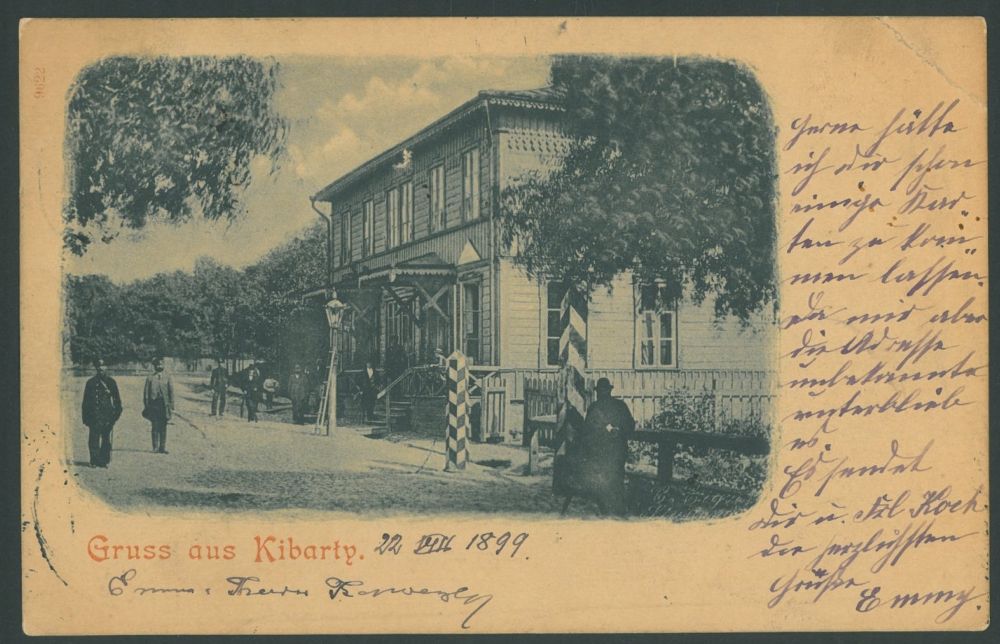 9622
Gerne hätte
ich Dir schon
einige Kar-
ten zu kom-
men lassen.
Da mir aber
die Adresse
unbekannt
unterblieb
es.
Es sendet
Dir u. Frl Koch
die herzlichsten
Grüße
Emmy.
Gruss aus Kibarty. 22 VIII 1899.
Emma